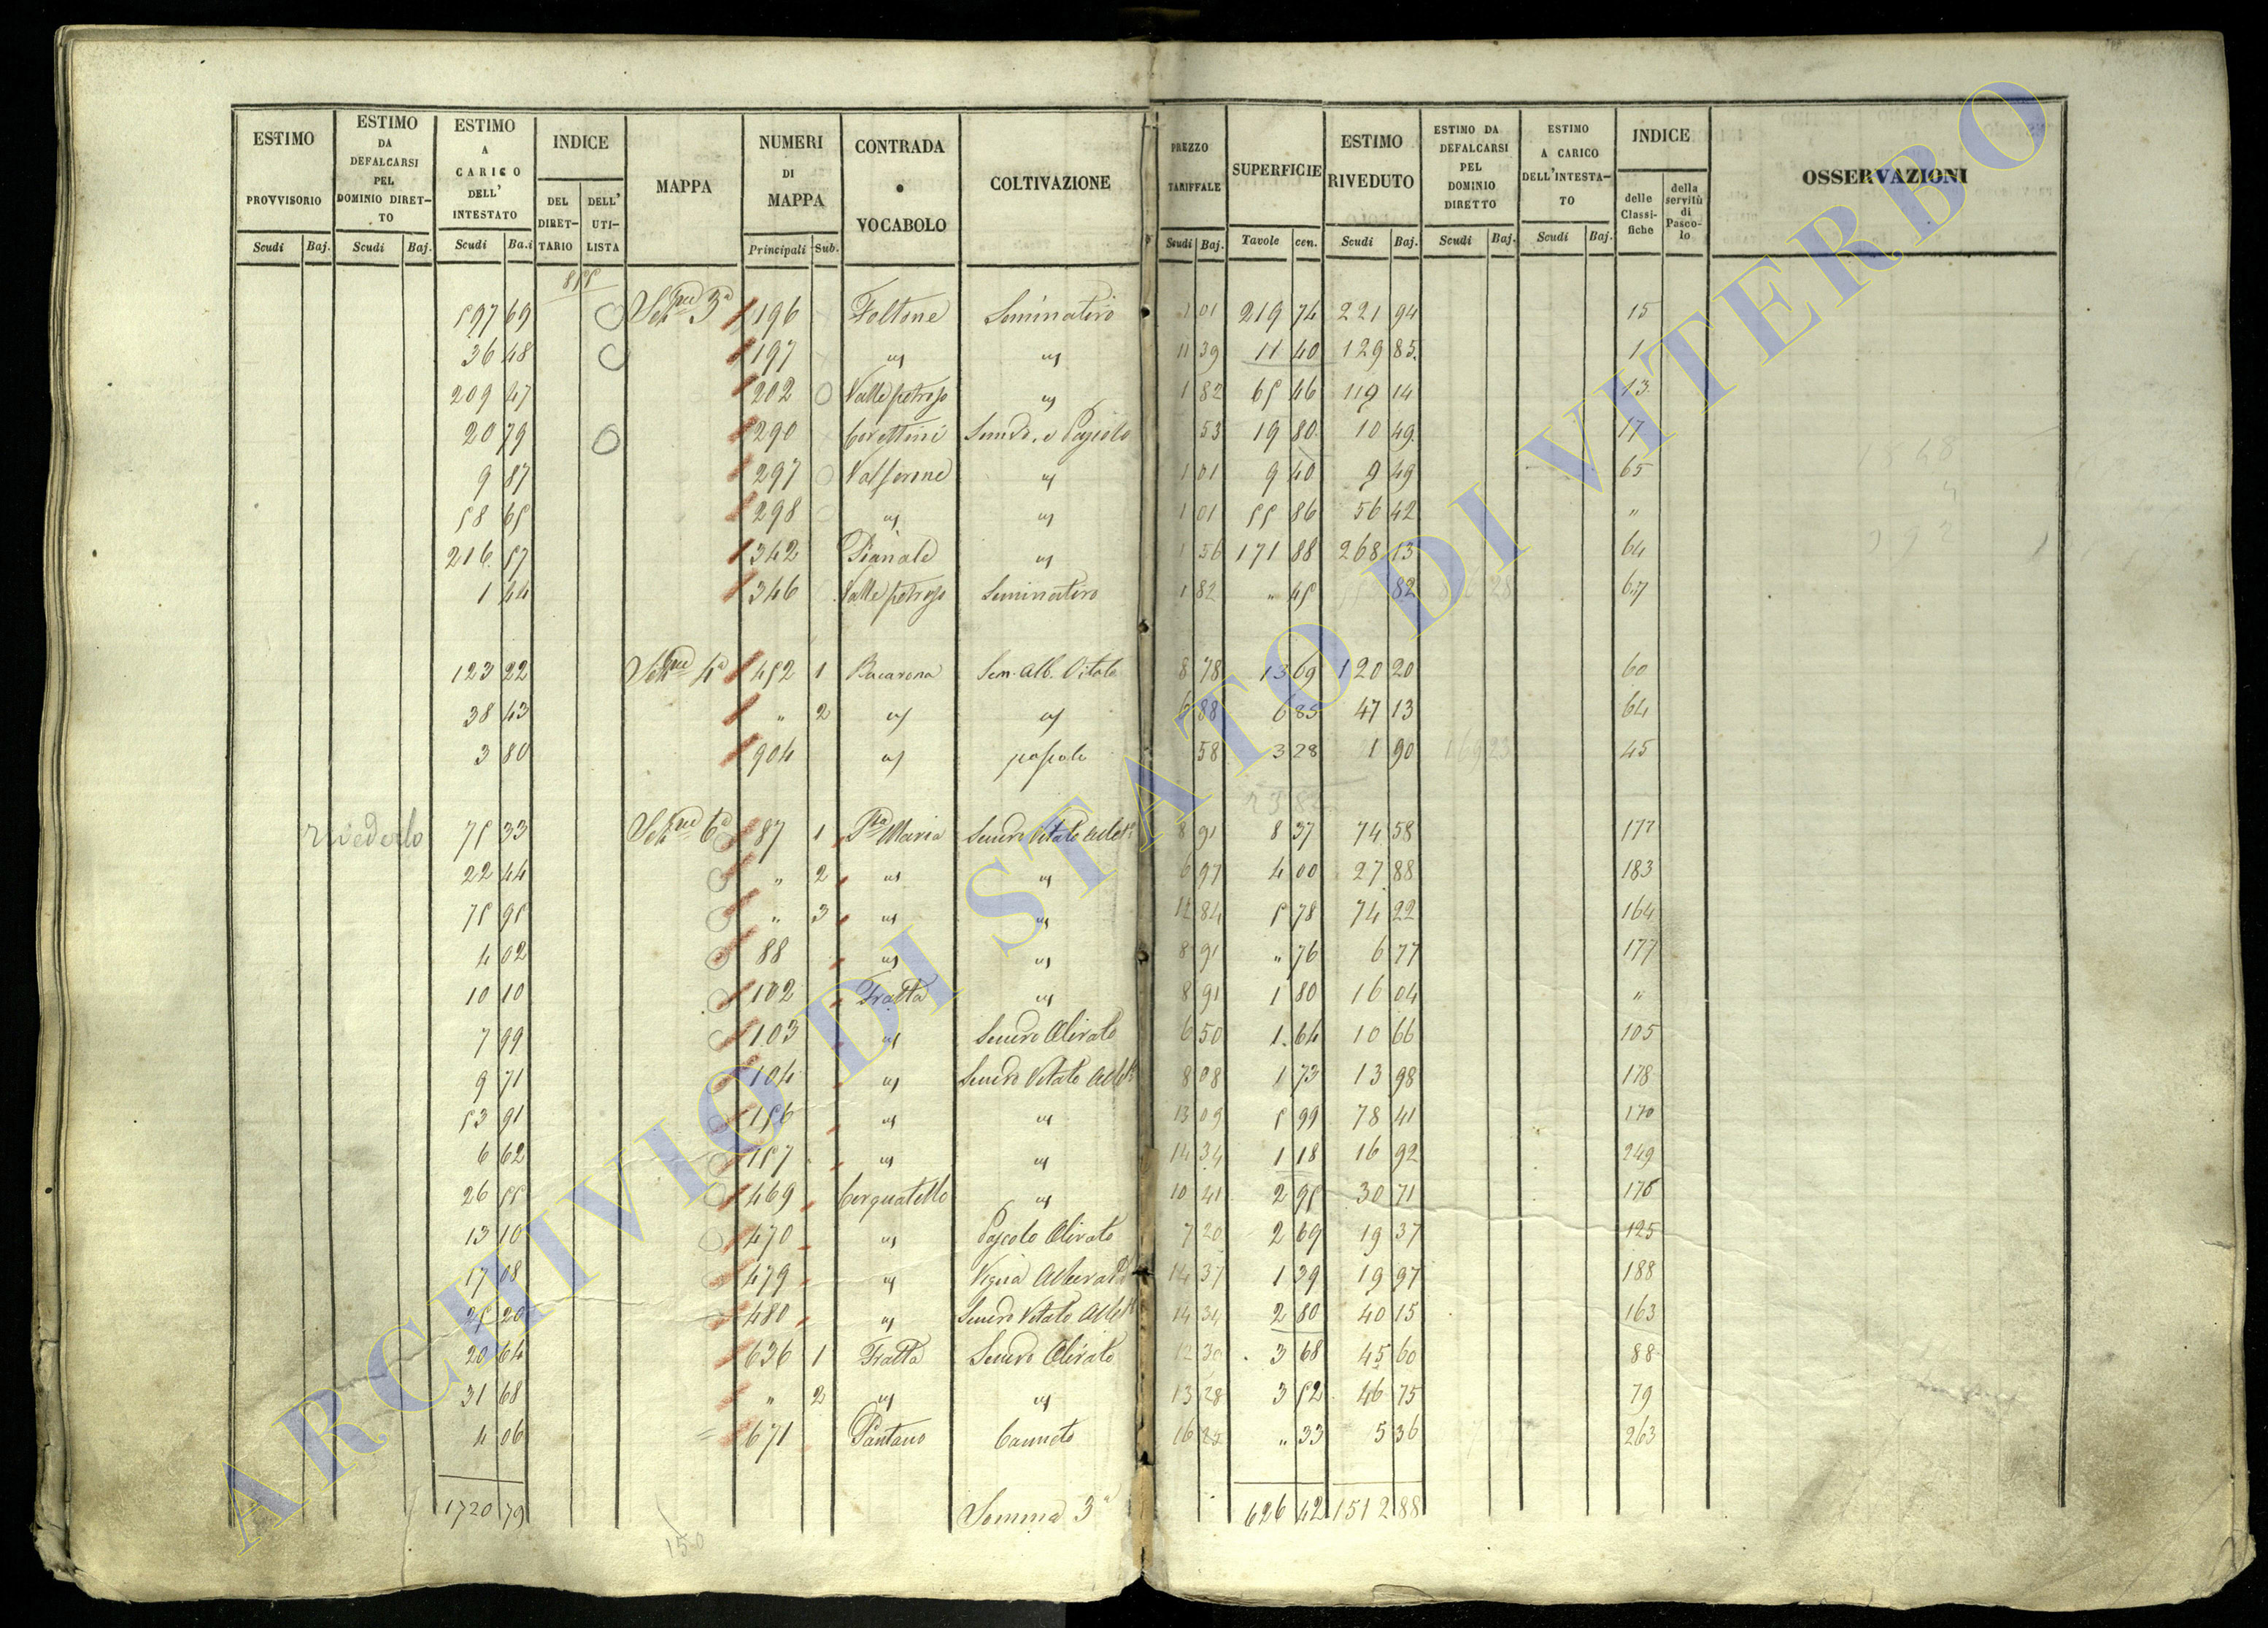 ESTIMO PROVVISORIO Scudi Baj.
ESTIMO DA DEFALCARSI PEL DOMINIO DIRETTO Scudi Baj.
ESTIMO A CARICO DELL' INTESTATO Scudi Ba.i
INDICE DEL DIRETTARIO DELL' UTILISTA
MAPPA
NUMERI DI MAPPA Principali Sub.
CONTRADA o VOCABOLO
COLTIVAZIONE
PREZZO TARIFFALE Scudi Baj.
SUPERFICIE Tavole cen.
ESTIMO RIVEDUTO Scudi Baj.
ESTIMO DA DEFALCARSI PEL DOMINIO DIRETTO Scudi Baj.
ESTIMO A CARICO DELL'INTESTATO Scudi Baj.
INDICE delle Classifiche della servitù di Pascolo
OSSERVAZIONI
855
597 69 Sezne 3a 196 Foltone Seminativo 1 01 219 74 221 94 15
36 48 197 " " 11 39 11 40 129 85 1
209 47 202 Valle petroso " 1 82 65 46 119 14 13
20 79 290 Semvo. e Pascolo 53 19 80 10 49 17
9 87 297 " 1 01 9 40 9 49 65
58 65 298 " " 1 01 55 86 56 42 "
216 57 342 Pianale " 1 56 171 88 268 13 64
1 44 346 Valle petroso Seminativo 1 82 " 45 82 67
123 22 Sezne 4a 452 1 Bacarona Sem. Alb. Vitato 8 78 13 69 120 20 60
38 43 " 2 " " 6 88 6 85 47 13 64
3 80 904 " pascolo 58 3 28 1 90 45
rivederlo 75 33 Sezne 6a 87 1 Sta Maria Semvo Vitato Albto 8 91 8 37 74 58 177
22 44 " 2 " " 6 97 4 00 27 88 183
75 95 " 3 " " 12 84 5 78 74 22 164
4 02 88 " " 8 91 " 76 6 77 177
10 10 102 Fratta " 8 91 1 80 16 04 "
7 99 103 " Semvo Olivato 6 50 1 64 10 66 105
9 71 104 " Semvo Vitato Albto 8 08 1 73 13 98 178
53 91 156 " " 13 09 5 99 78 41 170
6 62 157 " " 14 34 1 18 16 92 249
26 55 469 Cerquatello " 10 41 2 95 30 71 176
13 10 470 " Pascolo Olivato 7 20 2 69 19 37 125
17 08 479 " Vigna Alberata 14 37 1 39 19 97 188
25 20 480 " Semvo Vitato Albto 14 34 2 80 40 15 163
20 64 636 1 Fratta Semvo Olivato 12 39 3 68 45 60 88
31 68 " 2 " " 13 28 3 52 46 75 79
4 06 671 Pantano Canneto 16 25 " 33 5 36 263
1720 79 Somma 3a 626 42 1512 88
150
ARCHIVIO DI STATO DI VITERBO